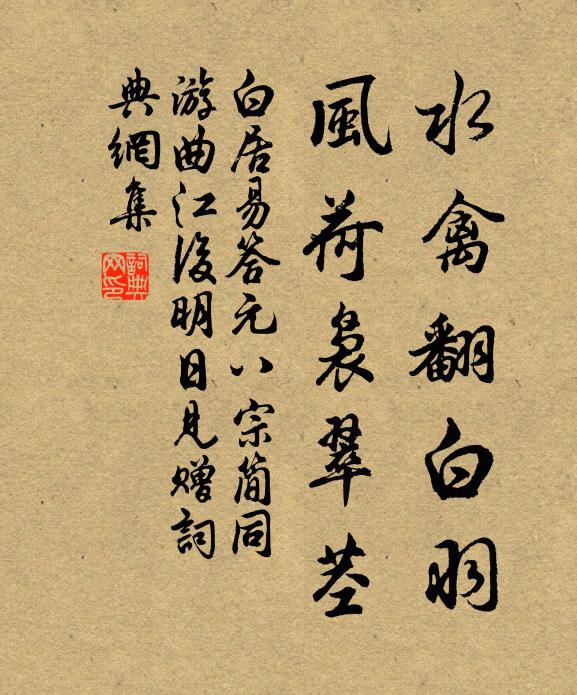 水禽翻白羽
風荷裊翠莖
白居易答元八宗簡同
游曲江後明日見贈詞
典網集
詞典
网印